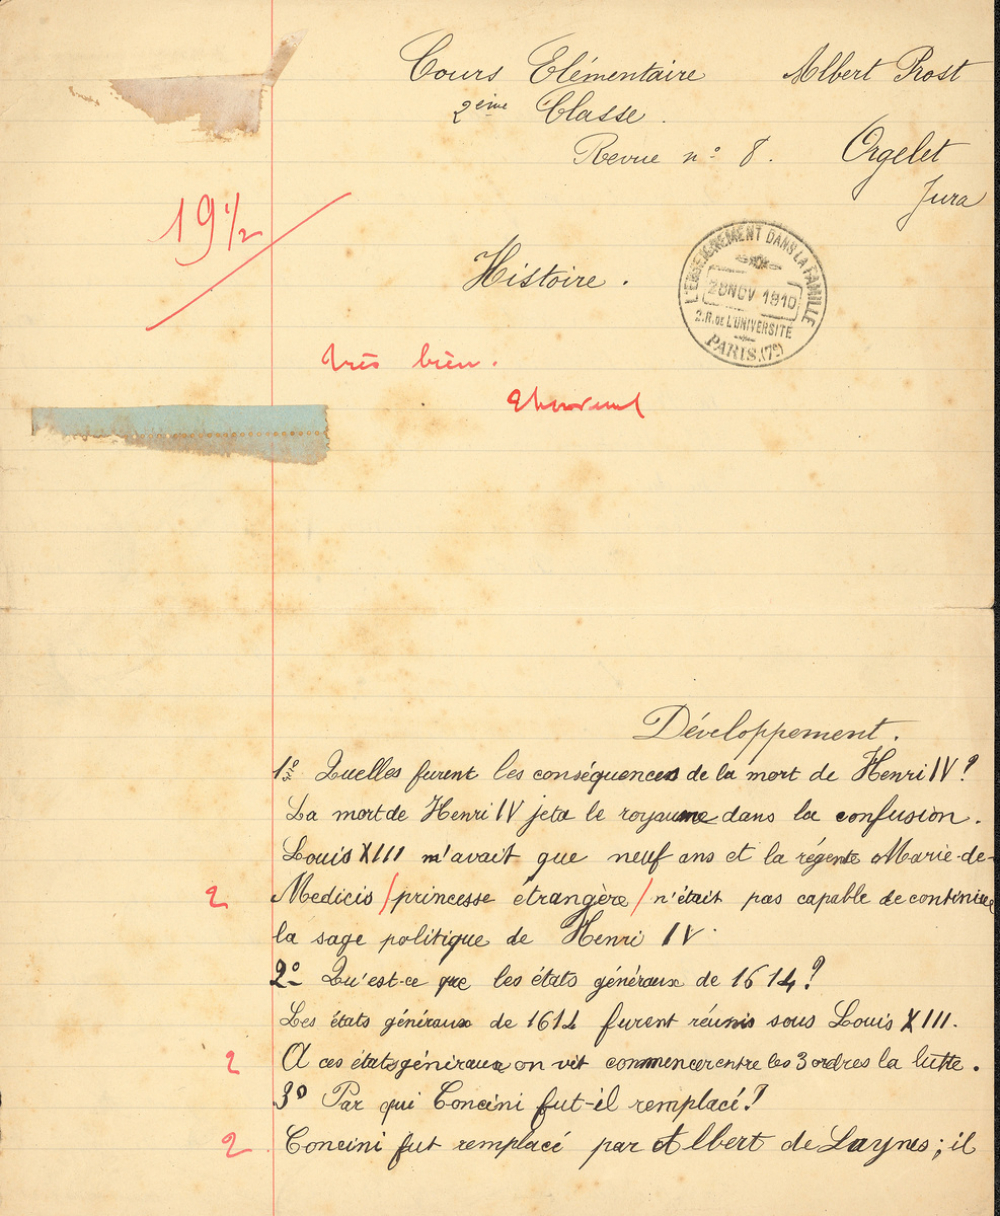 Cours Elémentaire Albert Prost
2ème Classe.
Revue n° 8. Orgelet
Jura
19 1/2
Histoire.
L'ENSEIGNEMENT DANS LA FAMILLE
28 NOV 1910
2.R. de L'UNIVERSITÉ
PARIS.(7e)
très bien.
Développement.
1° Quelles furent les conséquences de la mort de Henri IV?
La mort de Henri IV jeta le royaume dans la confusion.
Louis XIII n'avait que neuf ans et la régente Marie-de-
2 Medicis / princesse étrangère / n'était pas capable de continuer
la sage politique de Henri IV.
2° Qu'est-ce que les états généraux de 1614?
Les états généraux de 1614 furent réunis sous Louis XIII.
2 A ces états généraux on vit commencer entre les 3 ordres la lutte.
3° Par qui Concini fut-il remplacé?
2 Concini fut remplacé par Albert de Luynes; il